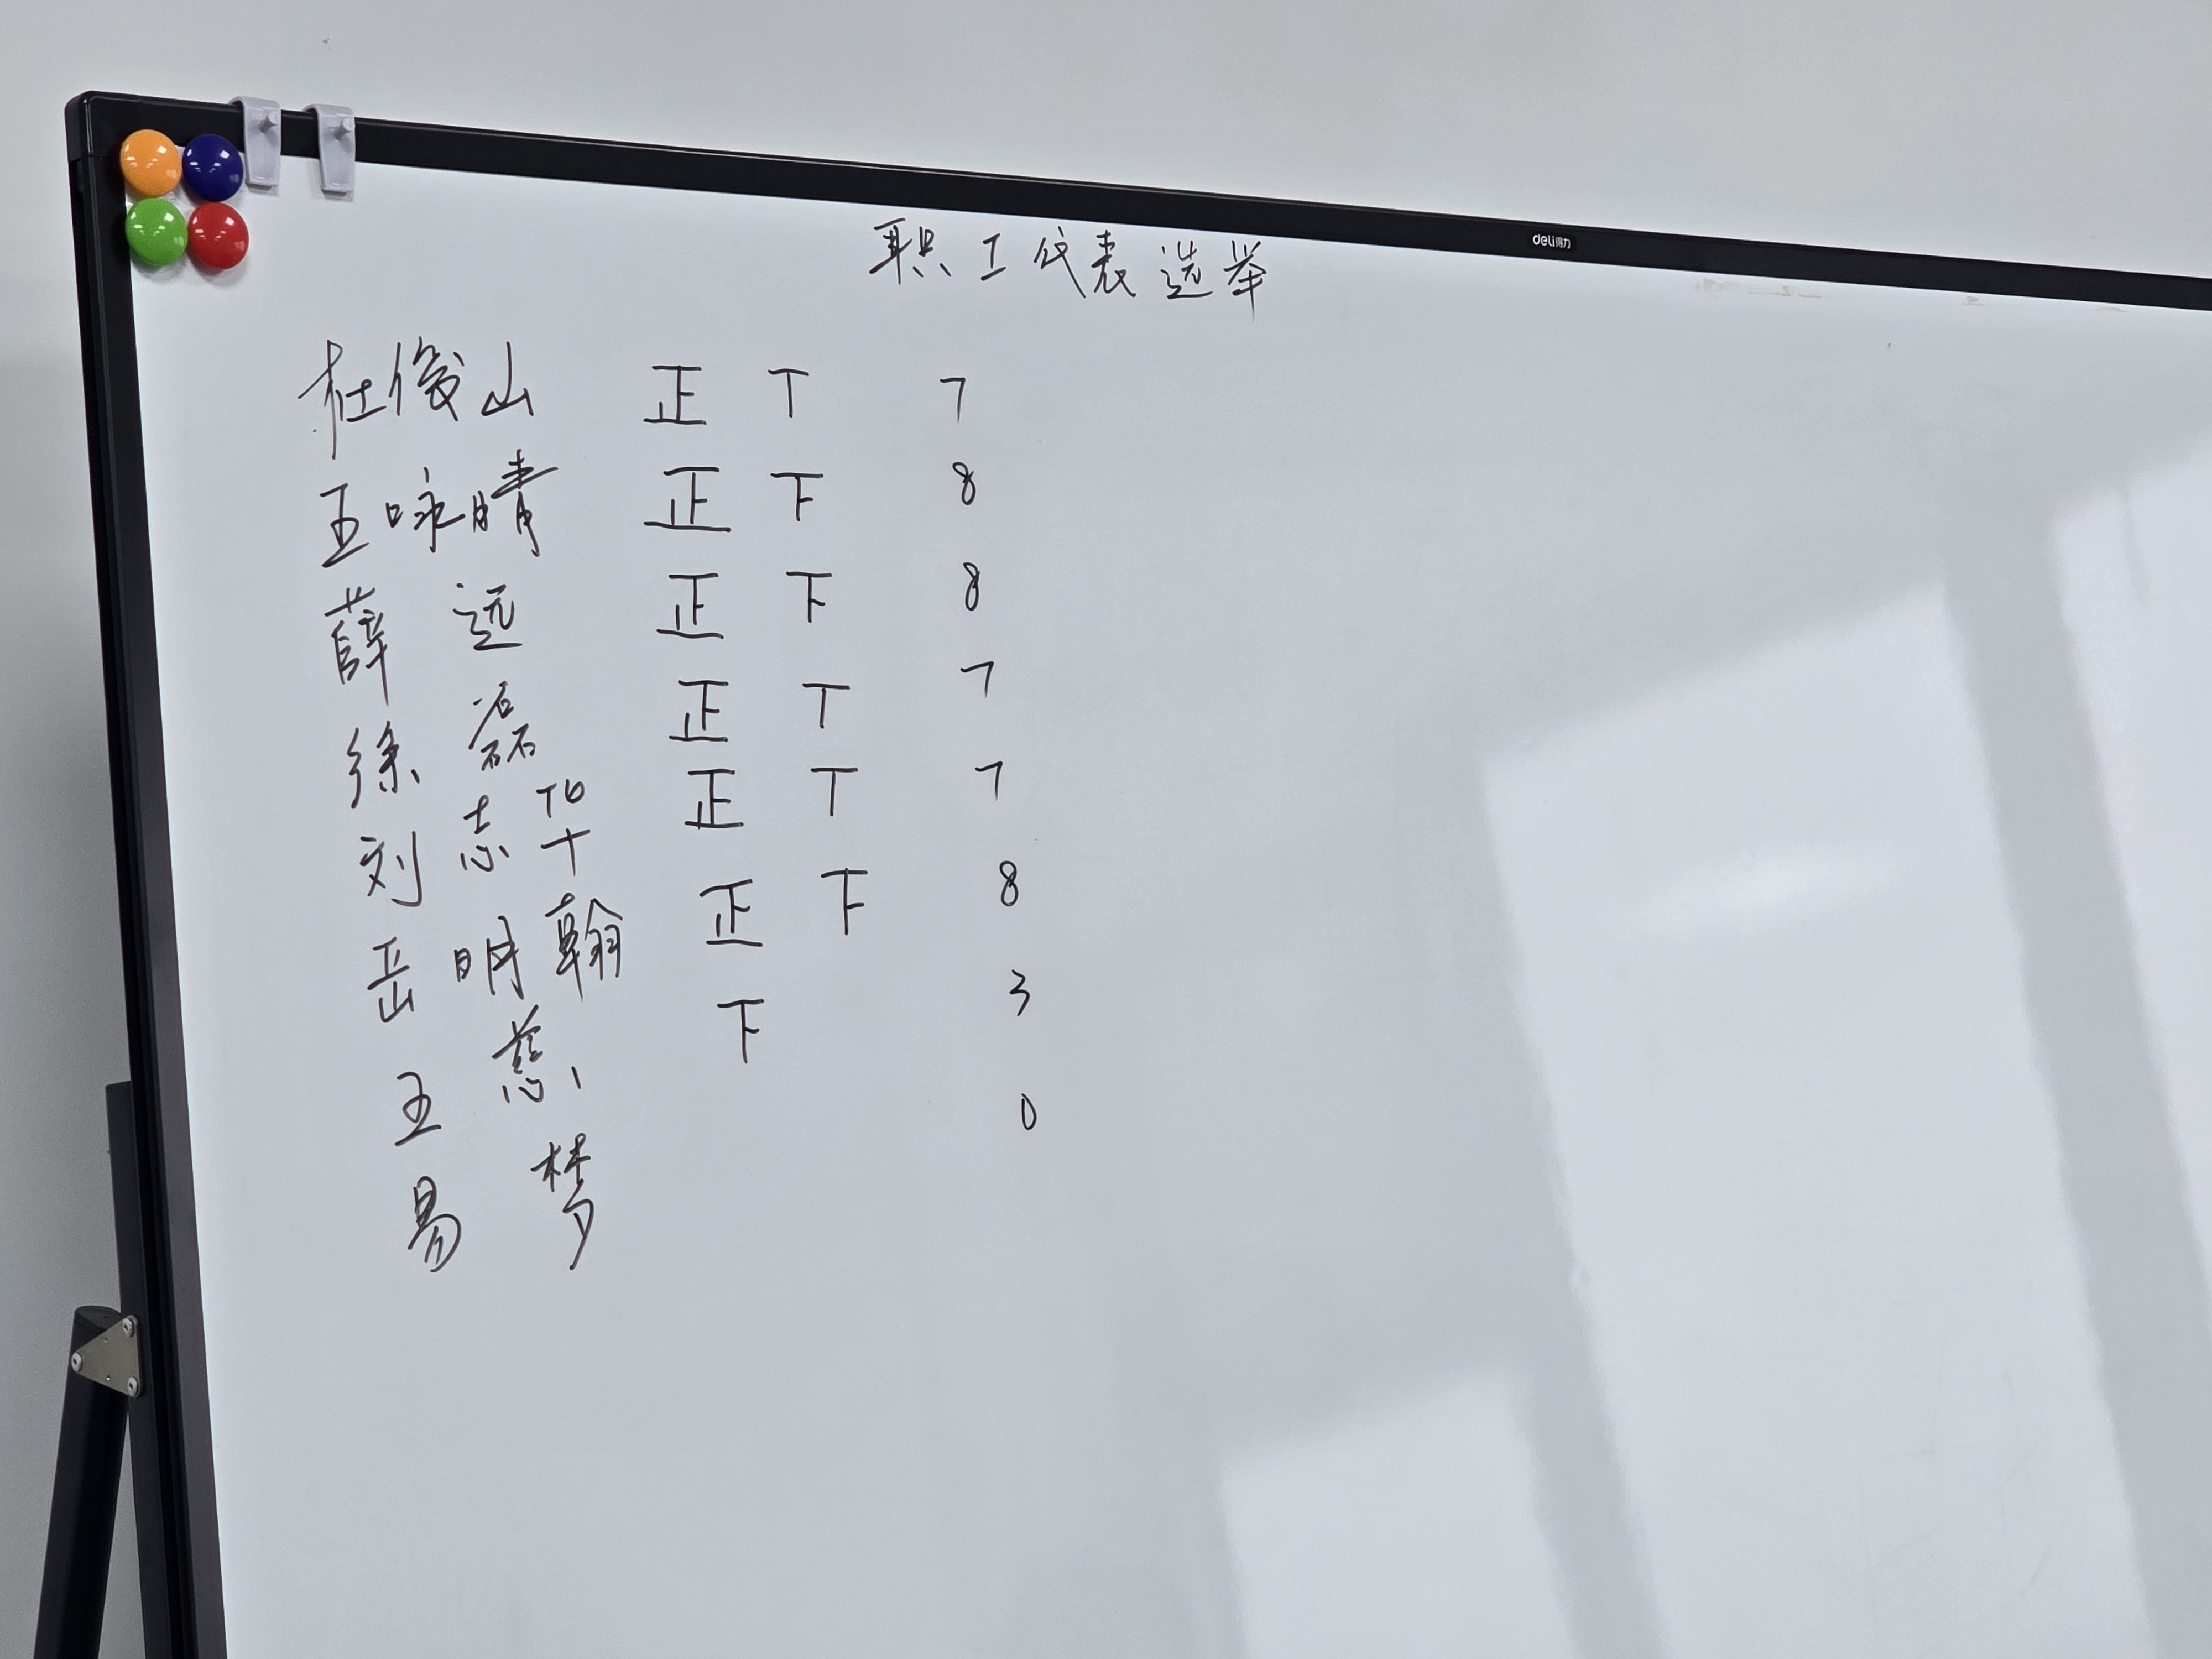 deli得力
职工代表选举
杜俊山 正 T 7
王咏晴 正 下 8
薛远 正 下 8
徐磊 正 T 7
刘志华 正 T 7
岳明翰 正 下 8
王慈 下 3
易梦 0